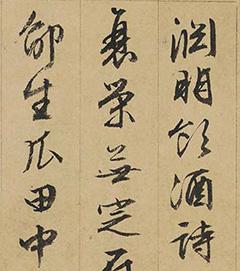 渊明饮酒诗
衰荣无定在
邵生瓜田中